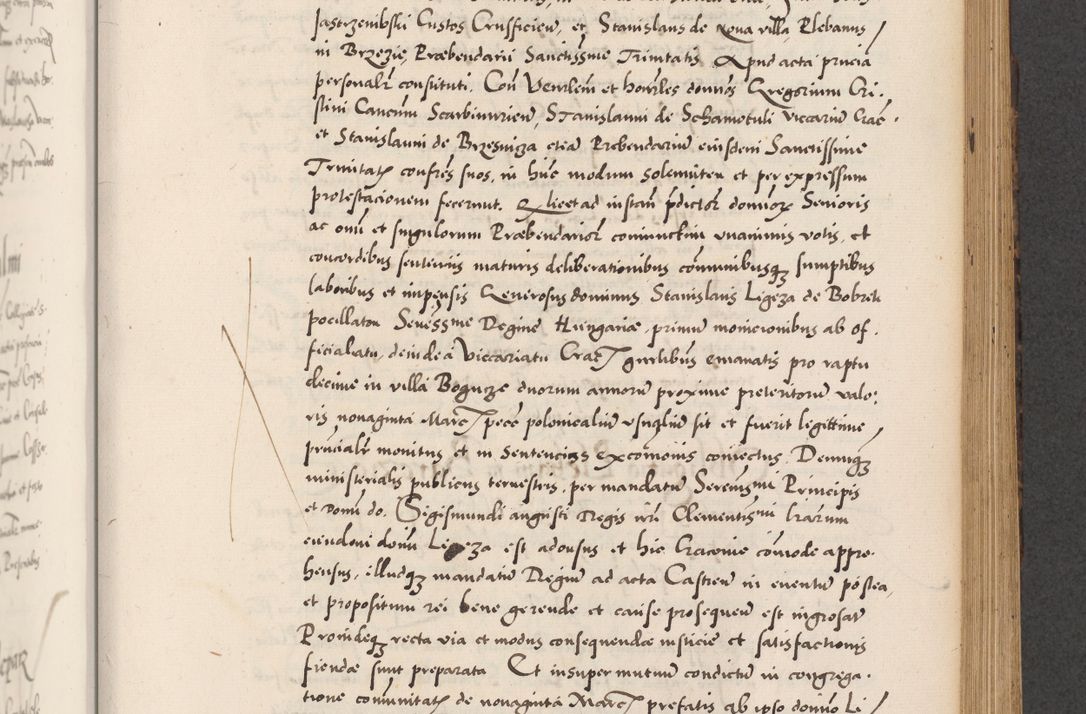 Jastrzembski Custos Crusficien, et Stanislaus de Nova villa Plebanus
in Brzezie, Præbendarii Sanctissime Trinitatis Apud acta præsentia
personalr constituti. Con Venrlem et honrles dominos Gregorium Cri-
stini Cancrum Scarbimirien, Stanislaum de Schamotuli viccarium Crac
et Stanislaum de Brzesnicza etiam Prebendarium eiusdem Sanctissime
Trinitatis confres suos, in hunc modum solemniter et per expressum
protestacionem fecerunt. Q licet ad instam pdictor dominor Senioris
ac omni et singulorum Præbendarior coniunctim unanimis votis, et
concordibus sententiis maturis deliberationibus communibusq sumptibus
laboribus et impensis Generosus dominus Stanislaus Ligeza de Bobrek
pocillator Seressme Regine Hungariæ, primum monicionibus ab of-
ficialatu, deinde a Viccariatu Crac gnrlibus emanatis pro raptu
decime in villa Bogucze duorum annorum proxime preteritorum valo-
ris nonaginta Marc pecc polonicalium usualium sit et fuerit legittime
principalr monitus et in sentencias excomonis coniectus. Demumq
ministerialis publicus terrestris, per mandatum Serenismi Principis
et Domi do. Sigismundi augusti Regis nri Clementismi lrarum
eiusdem domi Ligeza est adousus et hic Cracovie commode appre-
hensus, illudq mandatum Regium ad acta Castren in eventum postea,
et propositum rei bene gerende et cause prosequen est ingrosat
Proindeq recta via et modus consequendæ iusticie et satisfactionis
fiendæ sunt preparata Et insuper mutuum condictum in congrega-
tione communitatis de nonaginta Marc prefatis ab ipso domino Li